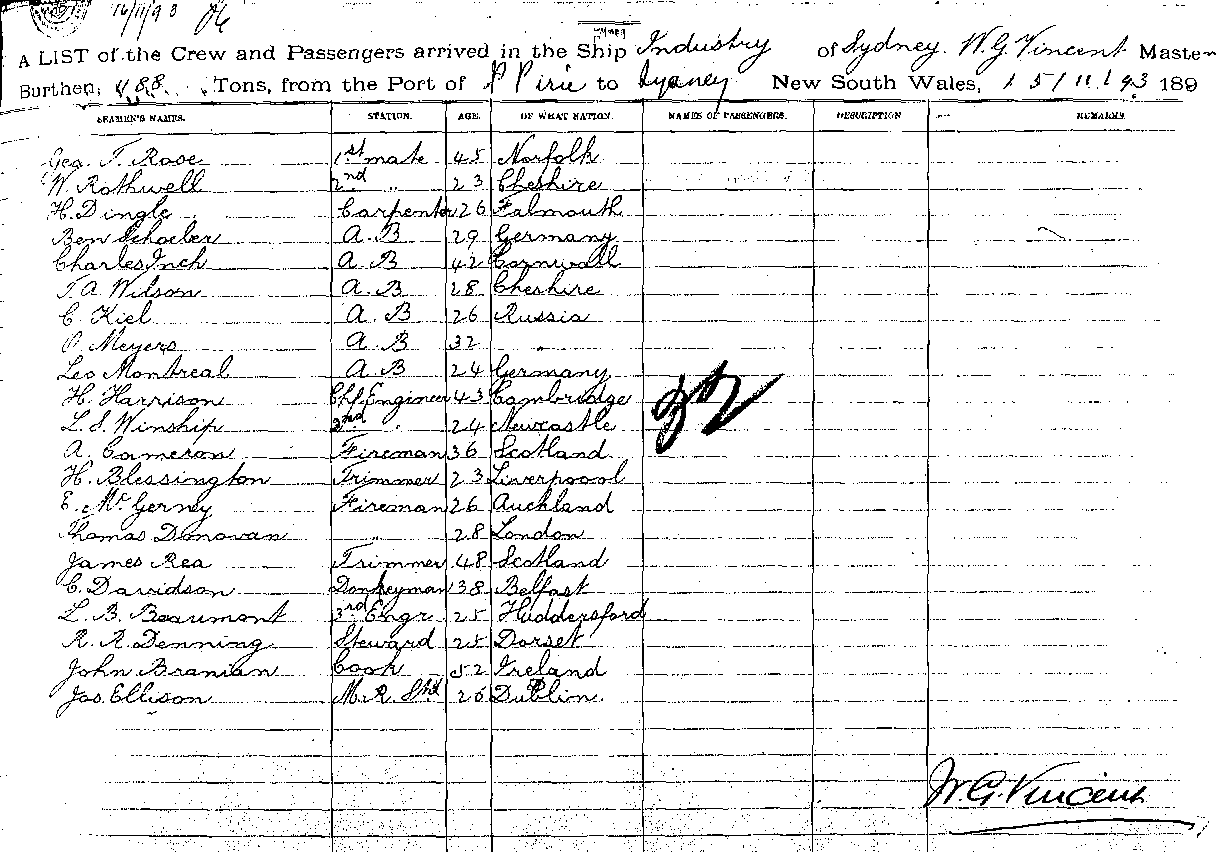 16/11/93
A LIST of the Crew and Passengers arrived in the Ship Industry of Sydney. W. G. Vincent Master
Burthen, 488 Tons, from the Port of P Pirie to Sydney New South Wales, 15/11/93 189
SEAMEN'S NAMES. STATION. AGE. OF WHAT NATION. NAMES OF PASSENGERS. DESCRIPTION REMARKS
Geo. T. Rose 1st mate 45 Norfolk
W. Rothwell 2nd " 23 Cheshire
H. Dingle Carpenter 26 Falmouth
Ben Schoeber A. B 29 Germany
Charles Inch A. B 42 Cornwall
T. A. Wilson A. B 28 Cheshire
C. Kiel A. B 26 Russia
P. Meyers A B 32 "
Leo Montreal A. B 24 Germany
H. Harrison Chf Engineer 43 Cambridge
L. S. Winship 2nd " 24 Newcastle
A. Cameron Fireman 36 Scotland
H. Blessington Trimmer 23 Liverpoool
E. Mc Gerny Fireman 26 Auckland
Thomas Donovan " 28 London
James Rea Trimmer 48 Scotland
C. Davidson Donkeyman 38 Belfast
L. B. Beaumont 3rd Engr. 25 Huddersford
R. R. Denning Steward 25 Dorset
John Branian Cook 52 Ireland
Jas Ellison M. R. Std 26 Dublin
W. G. Vincent